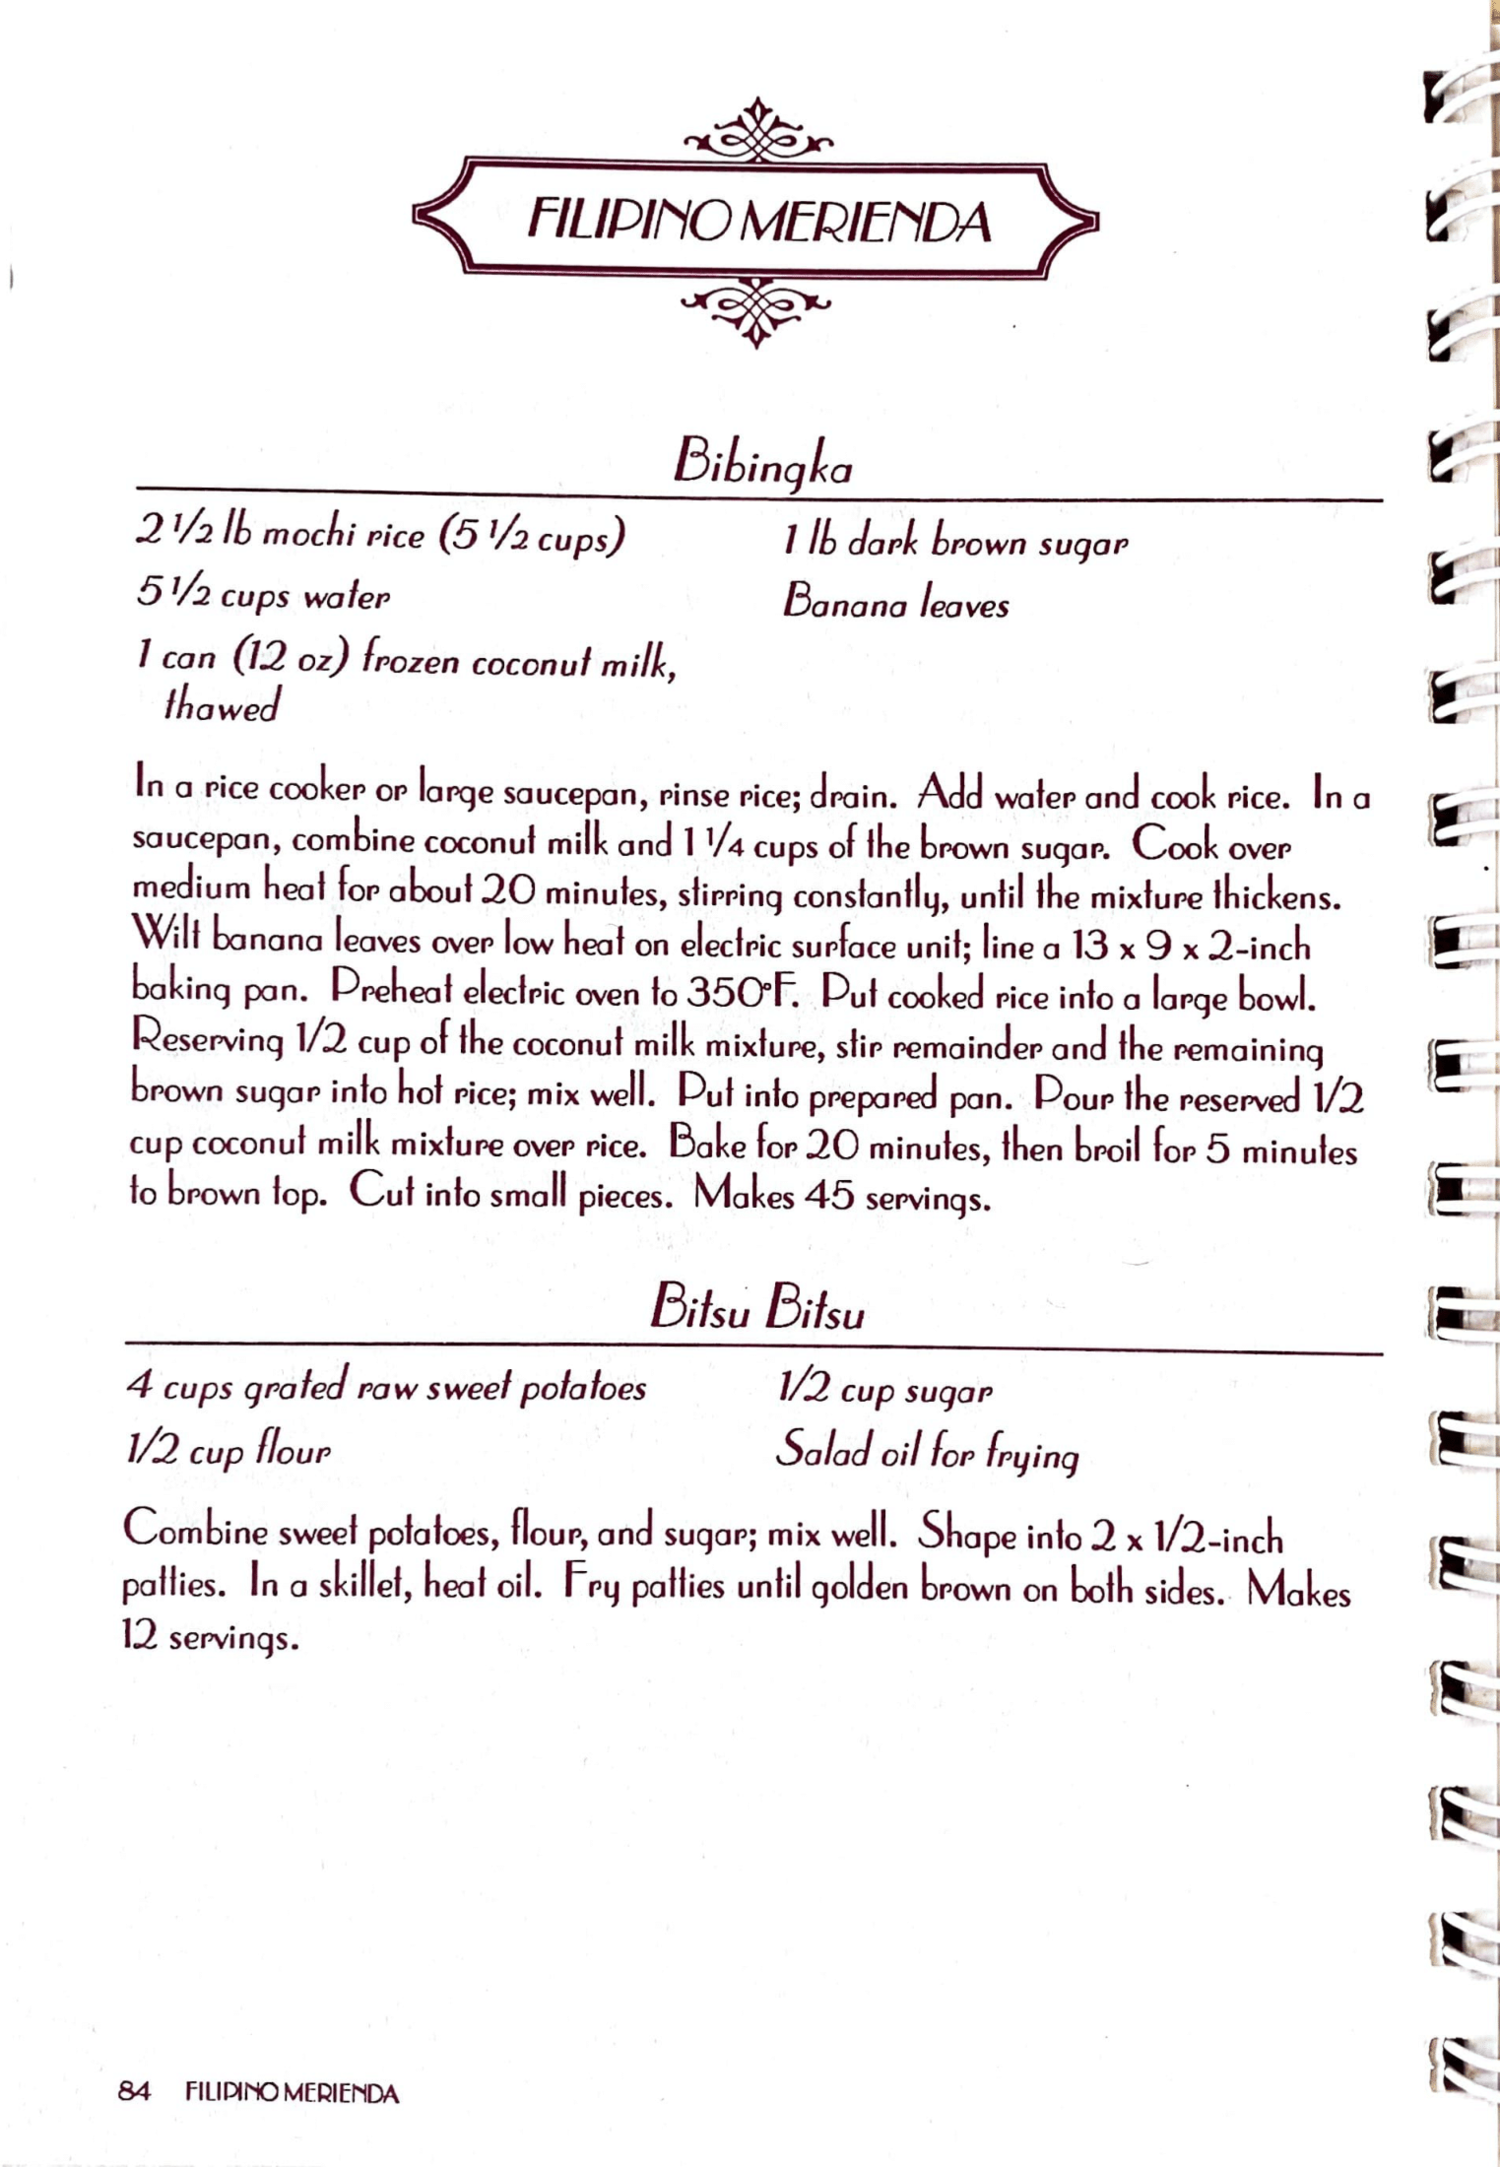 FILIPINO MERIENDA
Bibingka
2 1/2 lb mochi rice (5 1/2 cups)
5 1/2 cups water
1 can (12 oz) frozen coconut milk,
thawed
1 lb dark brown sugar
Banana leaves
In a rice cooker or large saucepan, rinse rice; drain. Add water and cook rice. In a
saucepan, combine coconut milk and 1 1/4 cups of the brown sugar. Cook over
medium heat for about 20 minutes, stirring constantly, until the mixture thickens.
Wilt banana leaves over low heat on electric surface unit; line a 13 x 9 x 2-inch
baking pan. Preheat electric oven to 350°F. Put cooked rice into a large bowl.
Reserving 1/2 cup of the coconut milk mixture, stir remainder and the remaining
brown sugar into hot rice; mix well. Put into prepared pan. Pour the reserved 1/2
cup coconut milk mixture over rice. Bake for 20 minutes, then broil for 5 minutes
to brown top. Cut into small pieces. Makes 45 servings.
Bitsu Bitsu
4 cups grated raw sweet potatoes
1/2 cup flour
1/2 cup sugar
Salad oil for frying
Combine sweet potatoes, flour, and sugar; mix well. Shape into 2 x 1/2-inch
patties. In a skillet, heat oil. Fry patties until golden brown on both sides. Makes
12 servings.
84 FILIPINO MERIENDA